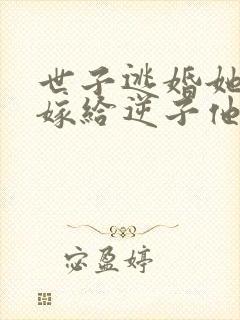 世子逃婚她
嫁给逆子他
宓盈婷